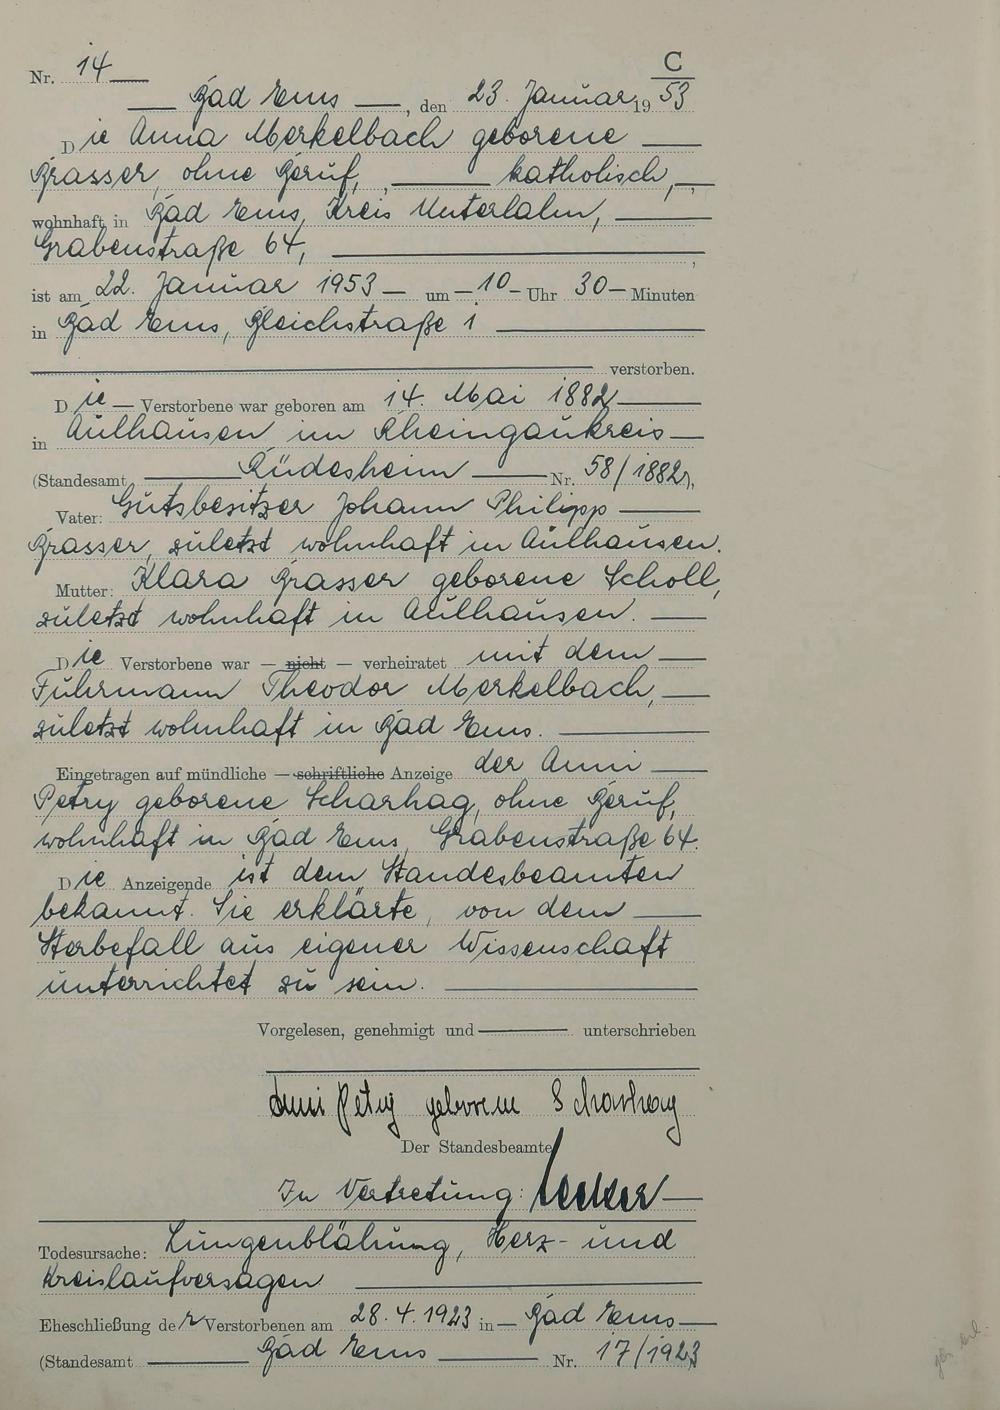 C
Nr. 14
Bad Ems, den 23. Januar 1953
Die Anna Merkelbach geborene
Grasser, ohne Beruf, katholisch,
wohnhaft in Bad Ems, Kreis Unterlahn,
Grabenstraße 64,
ist am 22. Januar 1953 um 10 Uhr 30 Minuten
in Bad Ems, Bleichstraße 1
verstorben.
Die Verstorbene war geboren am 14. Mai 1882
in Aulhausen im Rheingaukreis
(Standesamt Rüdesheim Nr. 58/1882),
Vater: Gutsbesitzer Johann Philipp
Grasser, zuletzt wohnhaft in Aulhausen.
Mutter: Klara Grasser geborene Scholl,
zuletzt wohnhaft in Aulhausen.
Die Verstorbene war — nicht — verheiratet mit dem
Fuhrmann Theodor Merkelbach,
zuletzt wohnhaft in Bad Ems.
Eingetragen auf mündliche — schriftliche Anzeige der Anni
Petry geborene Scharhag, ohne Beruf,
wohnhaft in Bad Ems, Grabenstraße 64.
Die Anzeigende ist dem Standesbeamten
bekannt. Sie erklärte, von dem
Sterbefall aus eigener Wissenschaft
unterrichtet zu sein.
Vorgelesen, genehmigt und unterschrieben
Anni Petry geborene Scharhag
Der Standesbeamte
In Vertretung:
Todesursache: Lungenblähung, Herz- und
Kreislaufversagen
Eheschließung der Verstorbenen am 28.4.1923 in Bad Ems
(Standesamt Bad Ems Nr. 17/1923